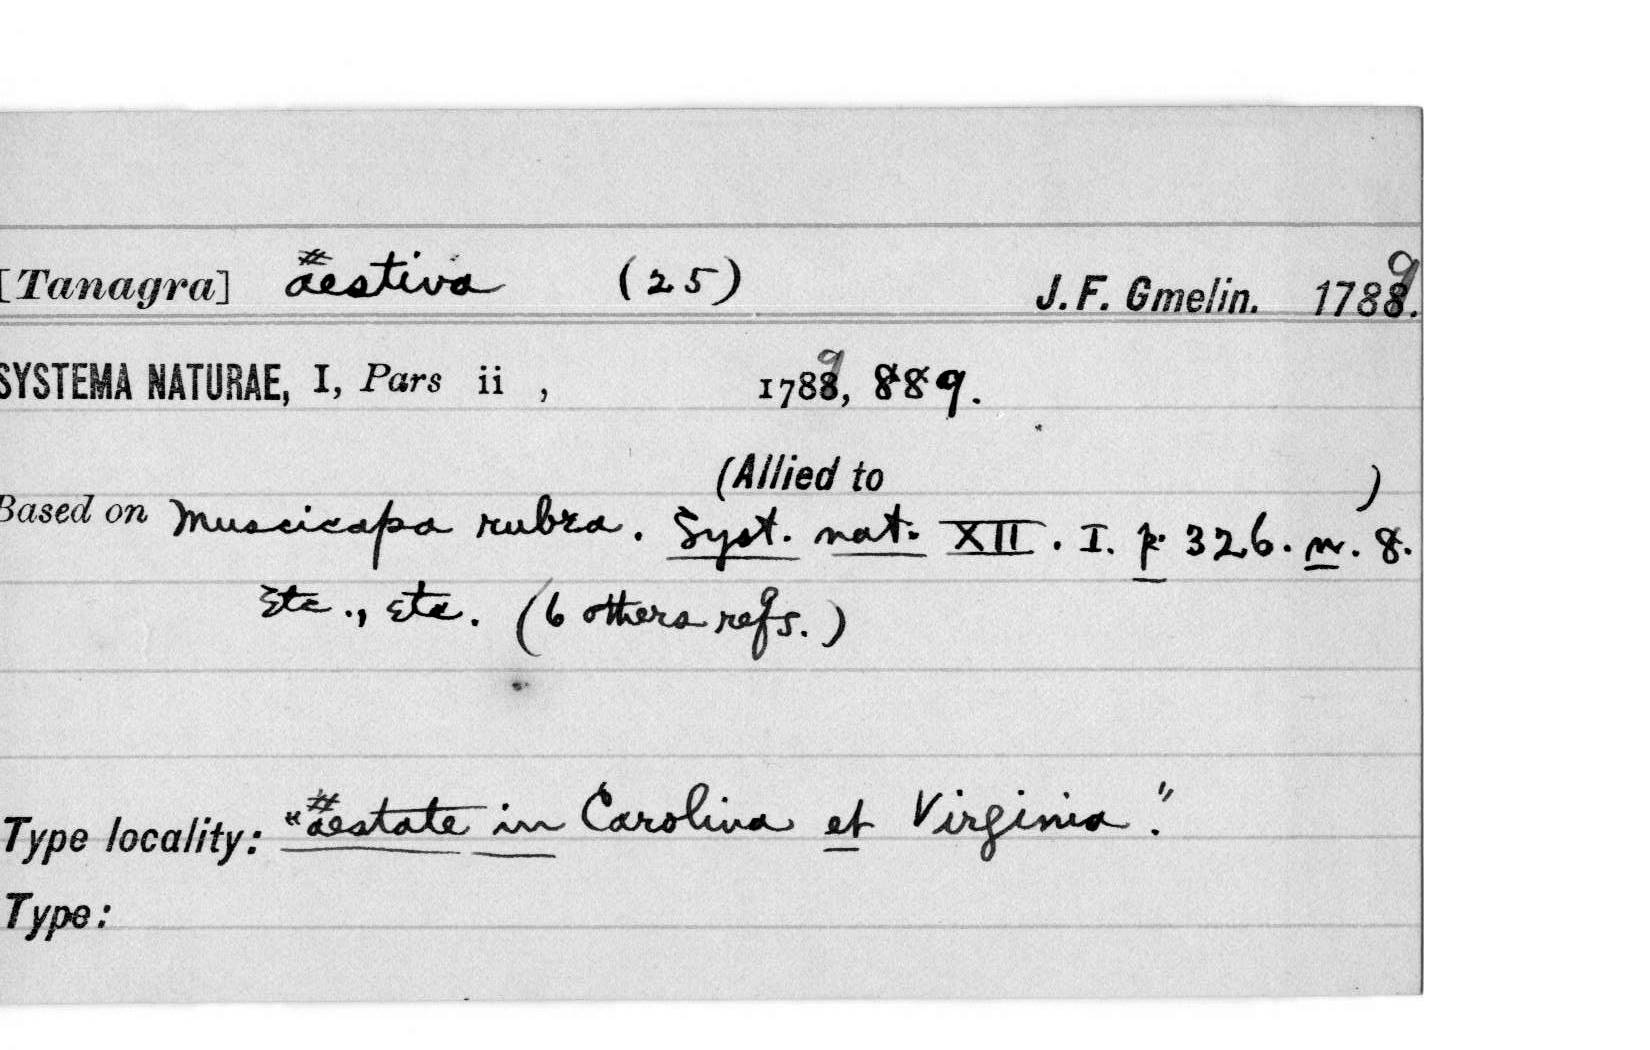 [Tanagra] aestiva (25) J. F. Gmelin. 1789.
SYSTEMA NATURAE, I, Pars ii , 1789, 889.
(Allied to )
Based on Muscicapa rubra. Syst. nat. XII. I. p. 326. n. 8.
Etc., etc. (6 others refs.)
Type locality: "aestate in Carolina et Virginia."
Type: